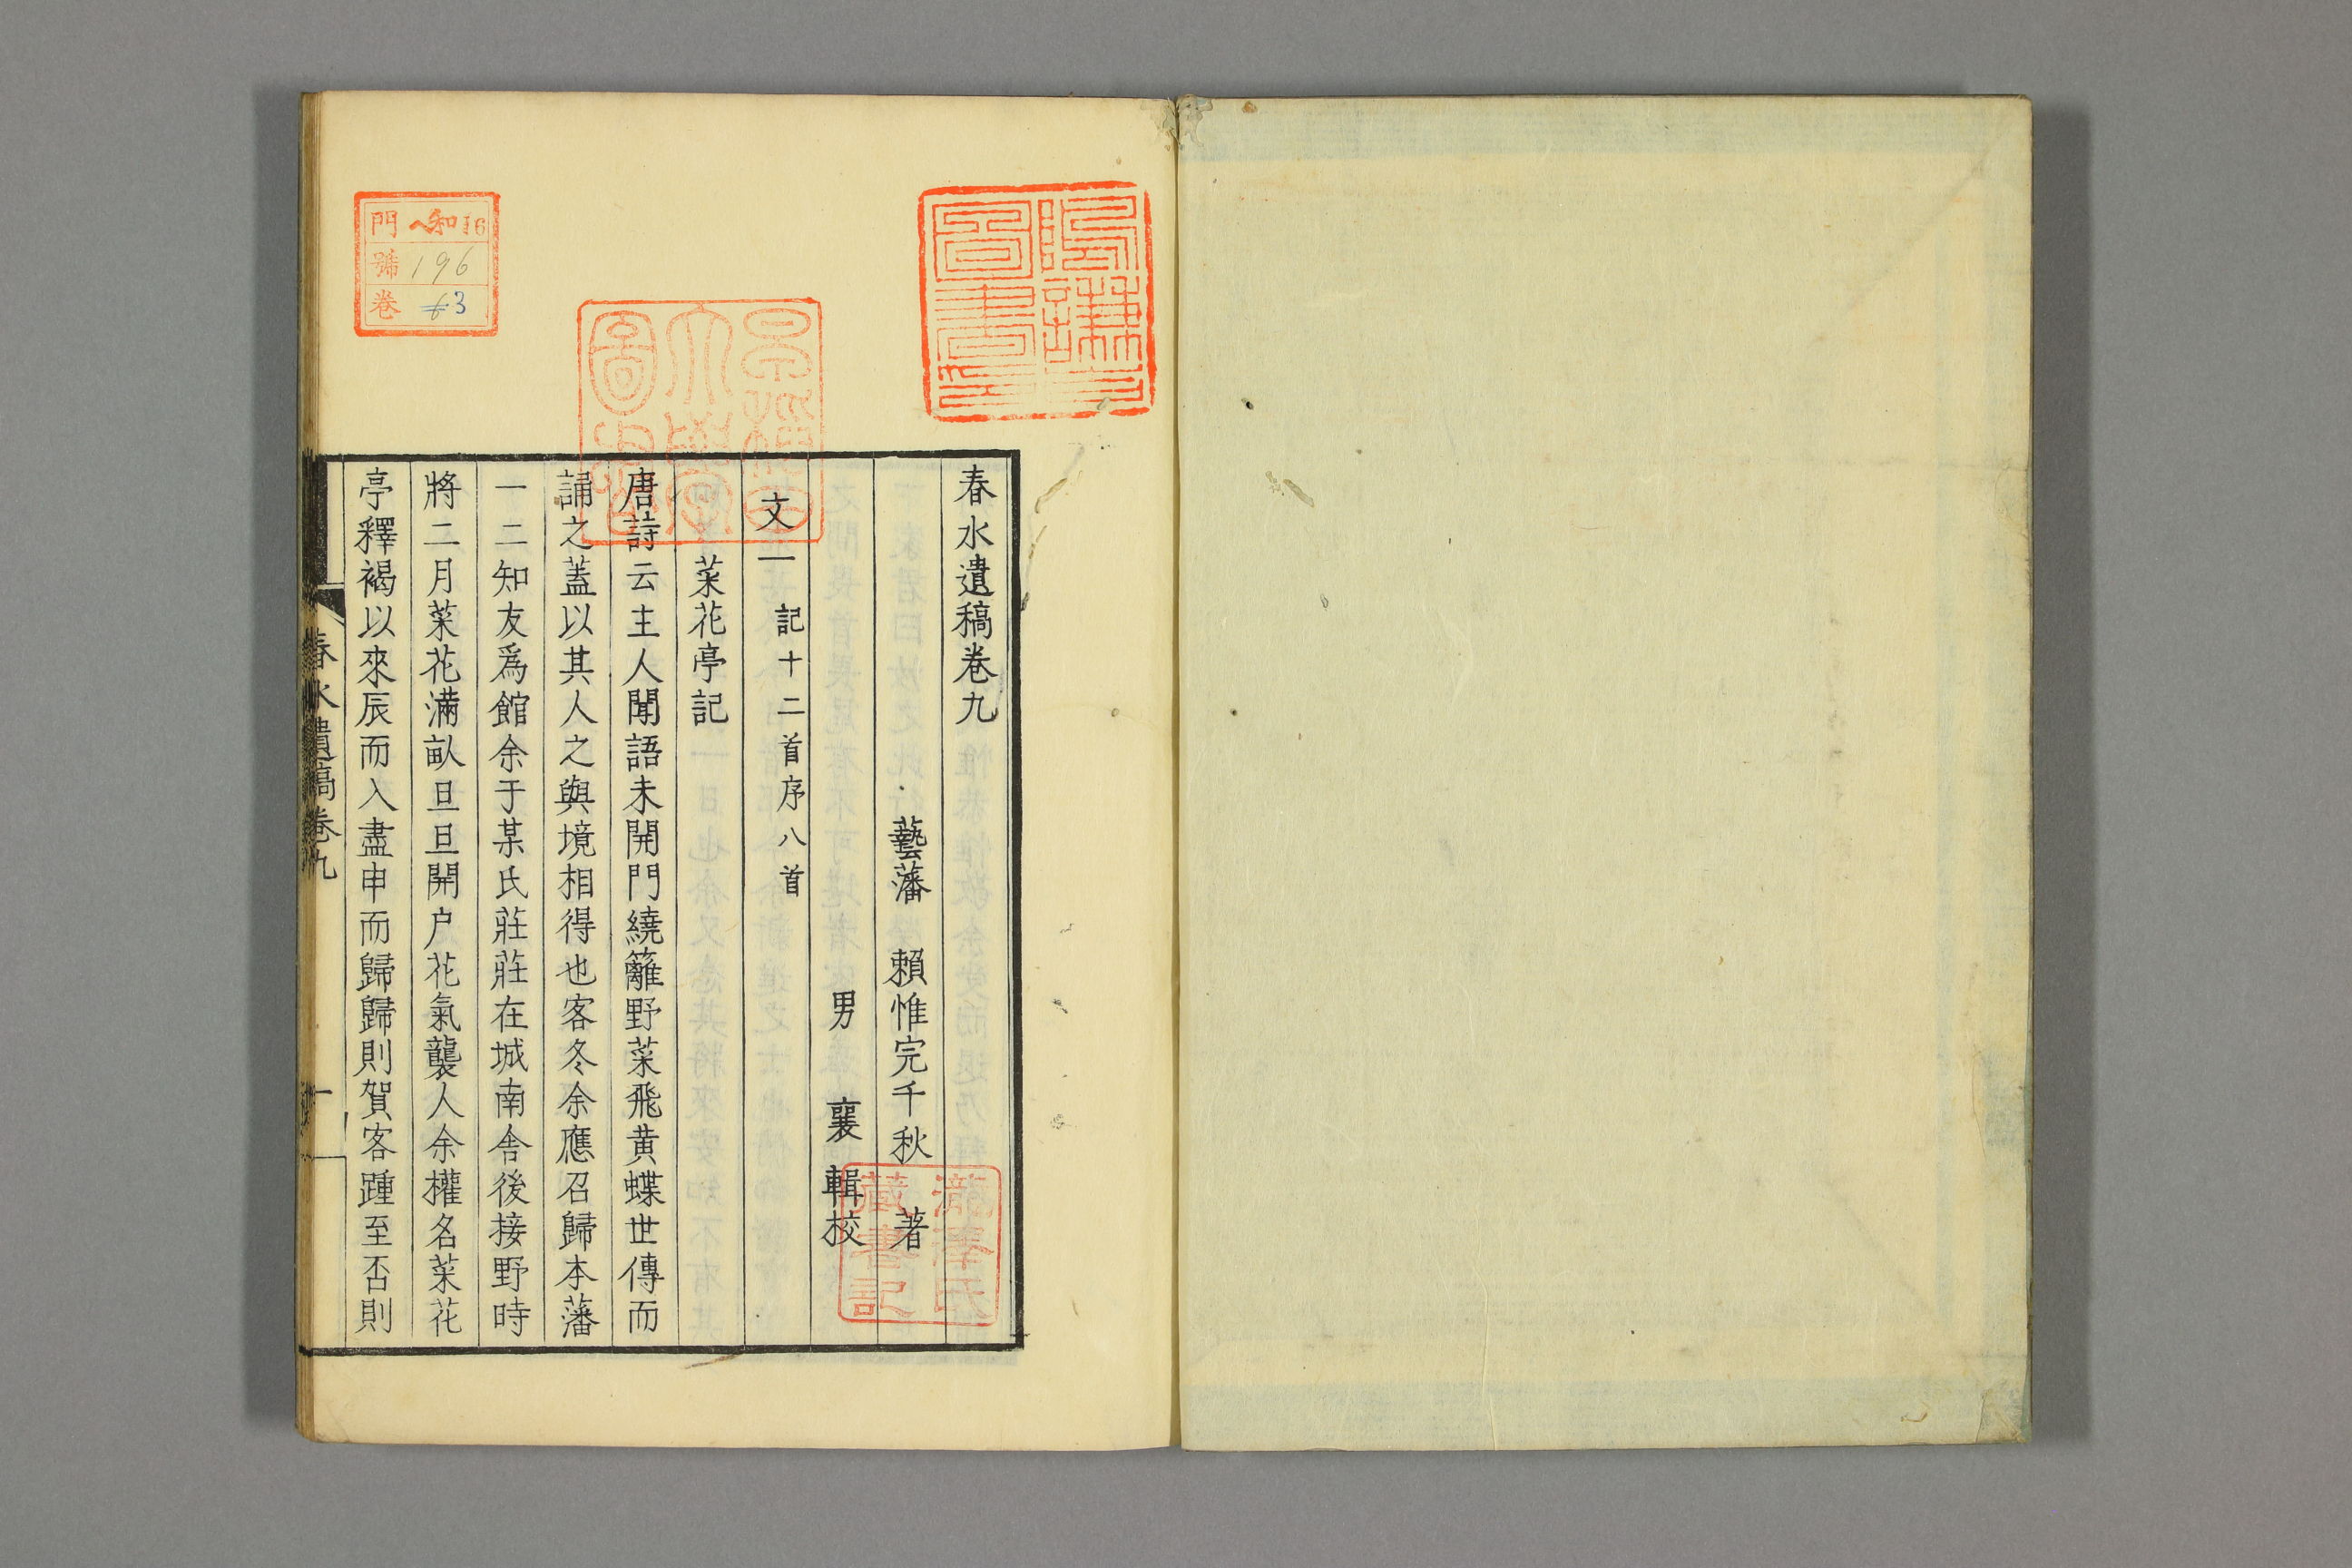 春水遺稿卷九
藝藩 賴惟完千秋 著
男 襄 輯校
文一 記十二首序八首
菜花亭記
唐詩云主人聞語未開門繞籬野菜飛黃蝶世傳而
誦之蓋以其人之與境相得也客冬余應召歸本藩
一二知友爲館余于某氏莊莊在城南舎後接野時
將二月菜花滿畝旦旦開户花氣襲人余權名菜花
亭釋褐以來辰而入盡申而歸歸則賀客踵至否則
春水遺稿卷九
一
門 ヘ和16
號 196
卷 6 3
藏書記